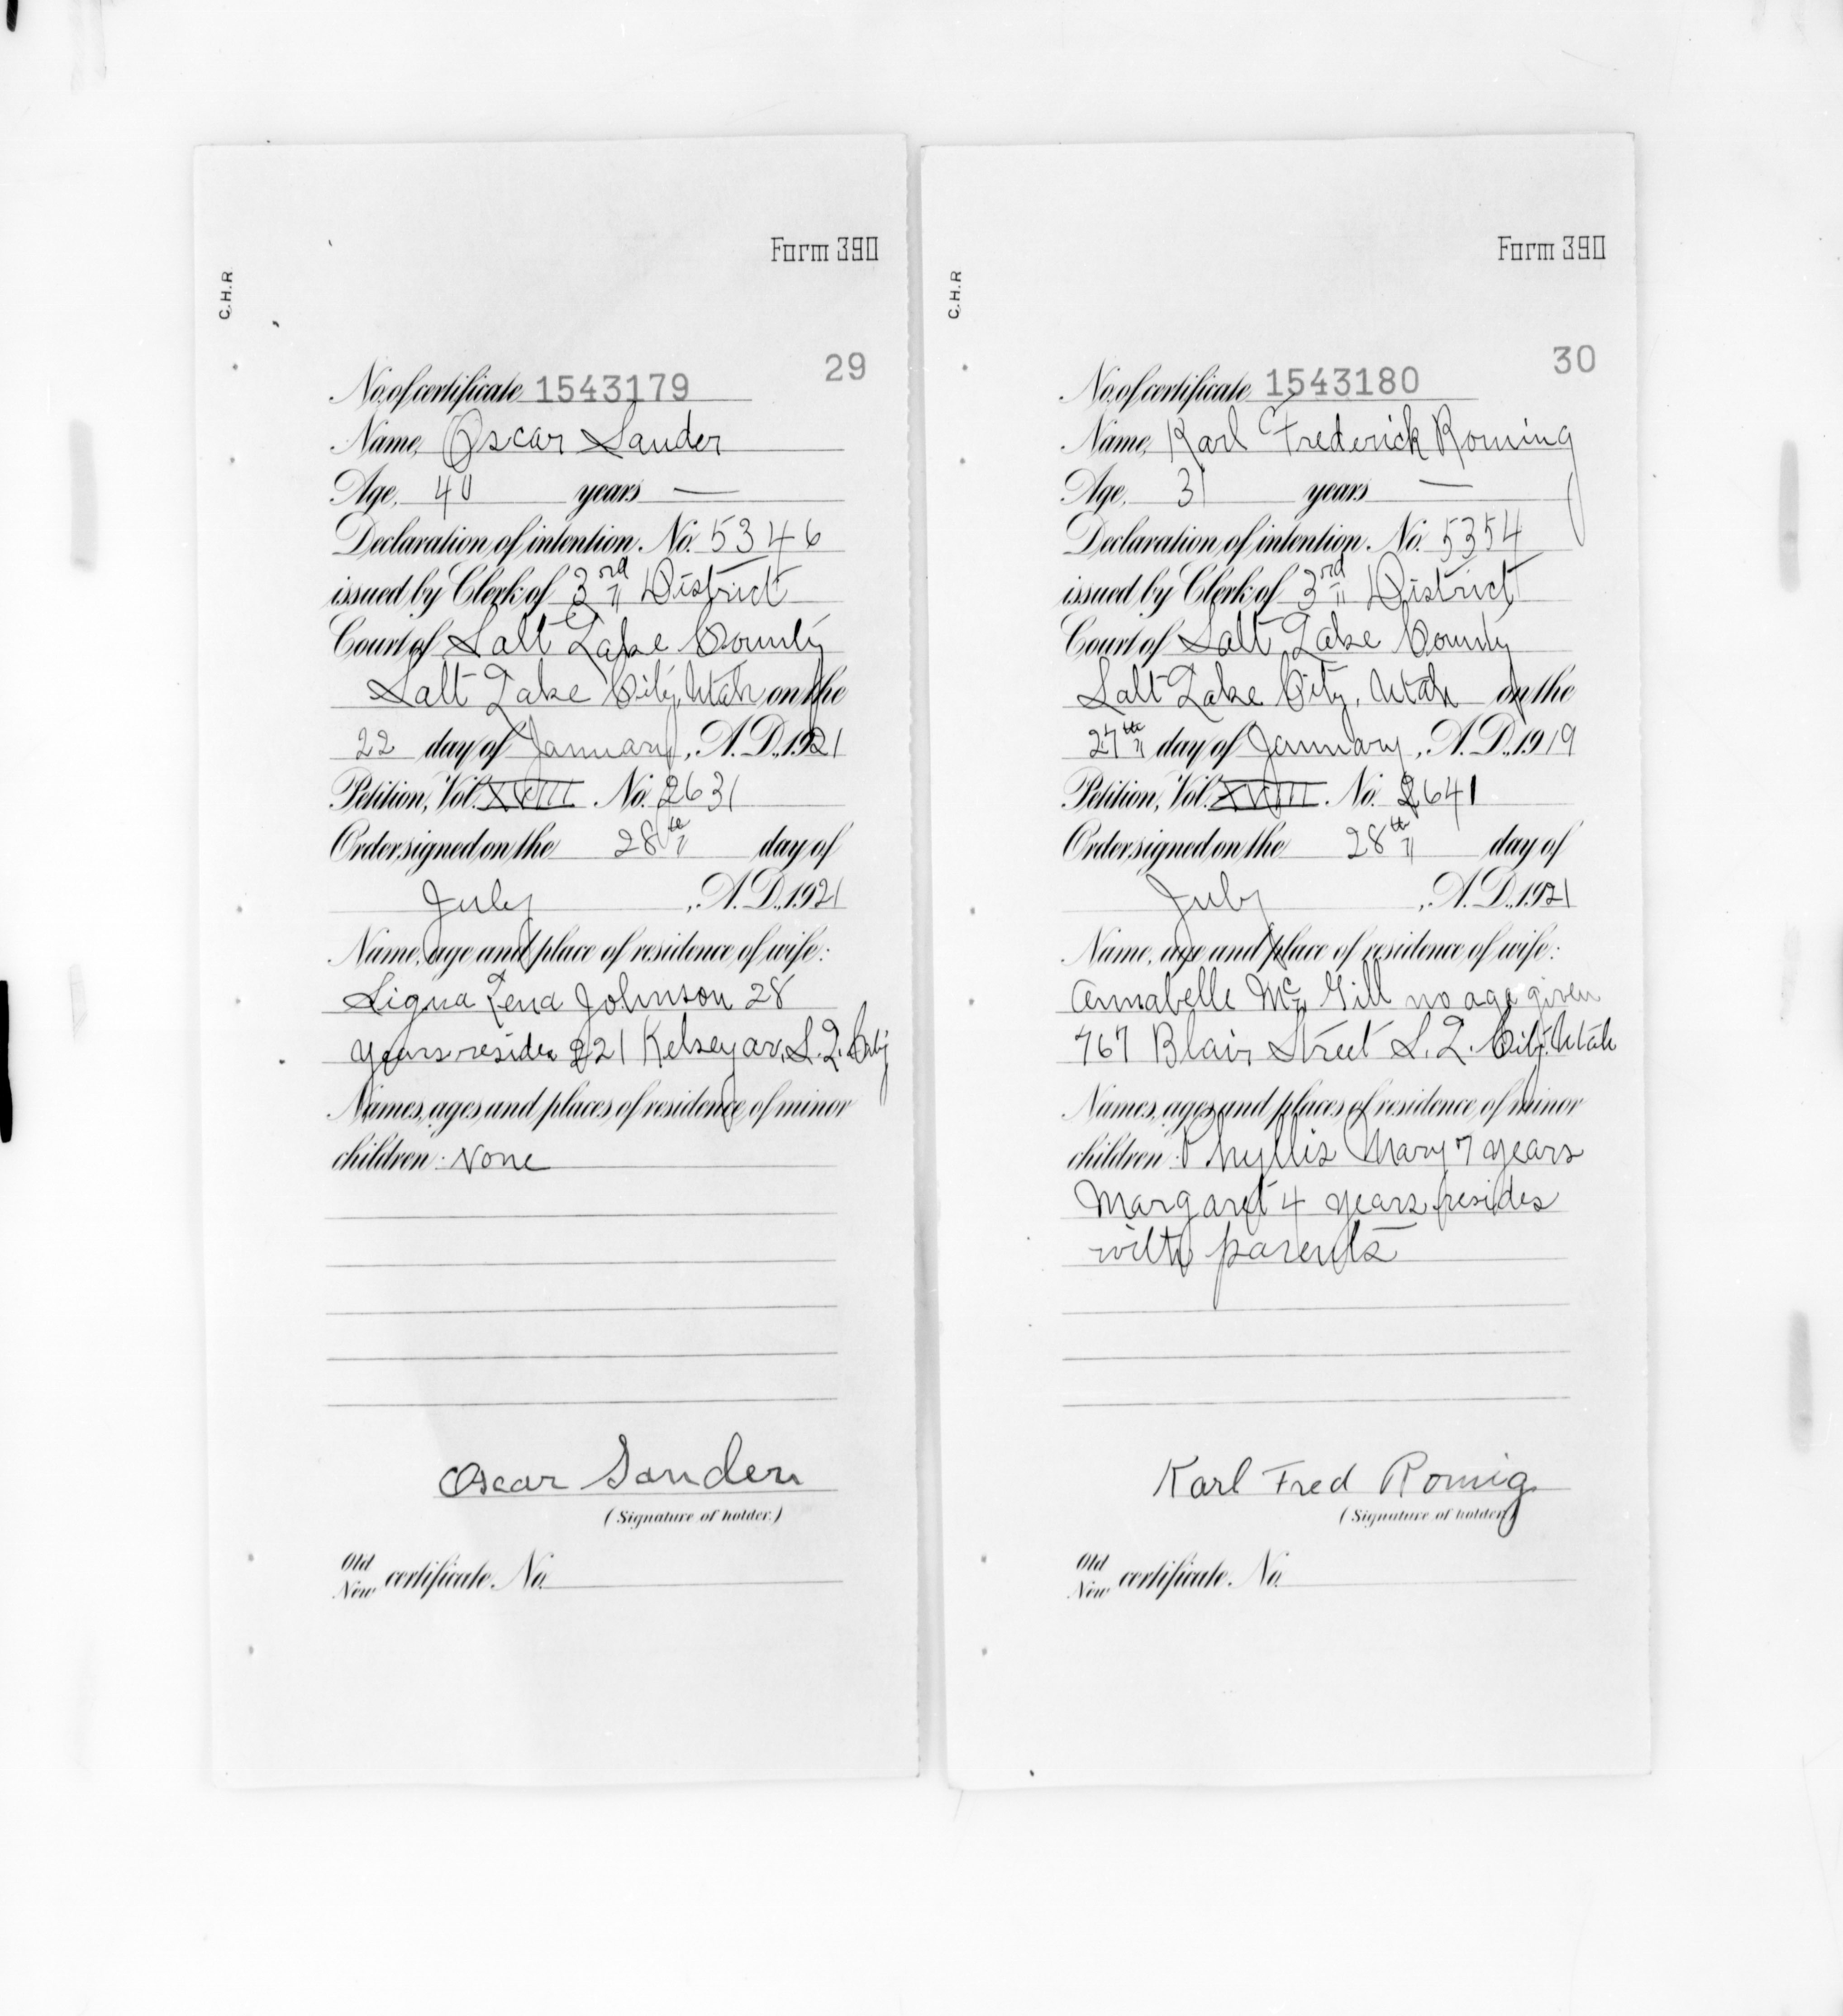 Form 390
C.H.R
29
No. of certificate 1543179
Name, Oscar Sander
Age, 40 years —
Declaration of intention, No. 5346
issued by Clerk of 3rd District
Court of Salt Lake County
Salt Lake City, Utah on the
22 day of January, A.D. 1921
Petition, Vol. XVIII No. 2631
Order signed on the 28th day of
July, A.D. 1921
Name, age and place of residence of wife:
Signa Lena Johnson 28
years resides 221 Kelsey av, S. L. City
Names, ages and places of residence of minor
children: None
Oscar Sander
(Signature of holder.)
Old
New certificate. No.
Form 390
C.H.R
30
No. of certificate 1543180
Name, Karl Frederick Roming
Age, 31 years —
Declaration of intention, No. 5354
issued by Clerk of 3rd District
Court of Salt Lake County
Salt Lake City, Utah on the
27th day of January, A.D. 1919
Petition, Vol. XVIII No. 2641
Order signed on the 28th day of
July, A.D. 1921
Name, age and place of residence of wife:
Annabelle Mc Gill no age given
767 Blair Street S. L. City Utah
Names, ages and places of residence of minor
children: Phyllis Mary 7 years
Margaret 4 years resides
with parents
Karl Fred Romig
(Signature of holder)
Old
New certificate. No.